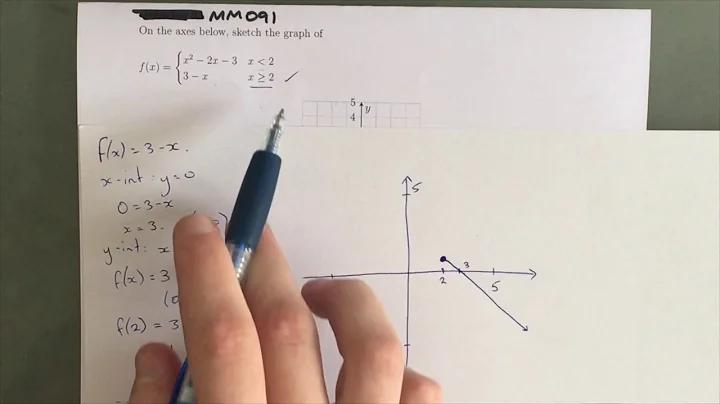 MM091
On the axes below, sketch the graph of
f(x) = { x² − 2x − 3   x < 2
3 − x   x ≥ 2 ✓
5 y
4
f(x) = 3 - x.
x-int : y = 0
0 = 3 - x
x = 3.
y-int: x
f(x) = 3
(0
f(2) = 3
5
2 3 5